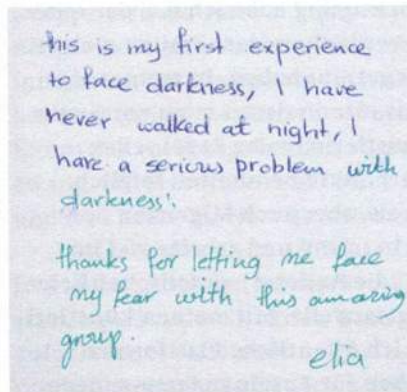 this is my first experience
to face darkness, I have
never walked at night, I
have a serious problem with
darkness!
thanks for letting me face
my fear with this amazing
group.
elia